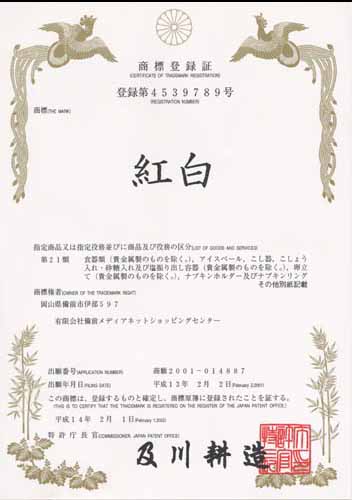 商標登録証
(CERTIFICATE OF TRADEMARK REGISTRATION)
登録第4539789号
(REGISTRATION NUMBER)
商標(THE MARK)
紅白
指定商品又は指定役務並びに商品及び役務の区分(LIST OF GOODS AND SERVICES)
第21類 食器類(貴金属製のものを除く。)，アイスペール，こし器，こしょう
入れ・砂糖入れ及び塩振り出し容器(貴金属製のものを除く。)，卵立
て(貴金属製のものを除く。)，ナプキンホルダー及びナプキンリング
その他別紙記載
商標権者(OWNER OF THE TRADEMARK RIGHT)
岡山県備前市伊部597
有限会社備前メディアネットショッピングセンター
出願番号(APPLICATION NUMBER) 商願2001-014887
出願年月日(FILING DATE) 平成13年 2月 2日(February 2,2001)
この商標は、登録するものと確定し、商標原簿に登録されたことを証する。
(THIS IS TO CERTIFY THAT THE TRADEMARK IS REGISTERED ON THE REGISTER OF THE JAPAN PATENT OFFICE.)
平成14年 2月 1日(February 1,2002)
特許庁長官(COMMISSIONER, JAPAN PATENT OFFICE)
及川耕造